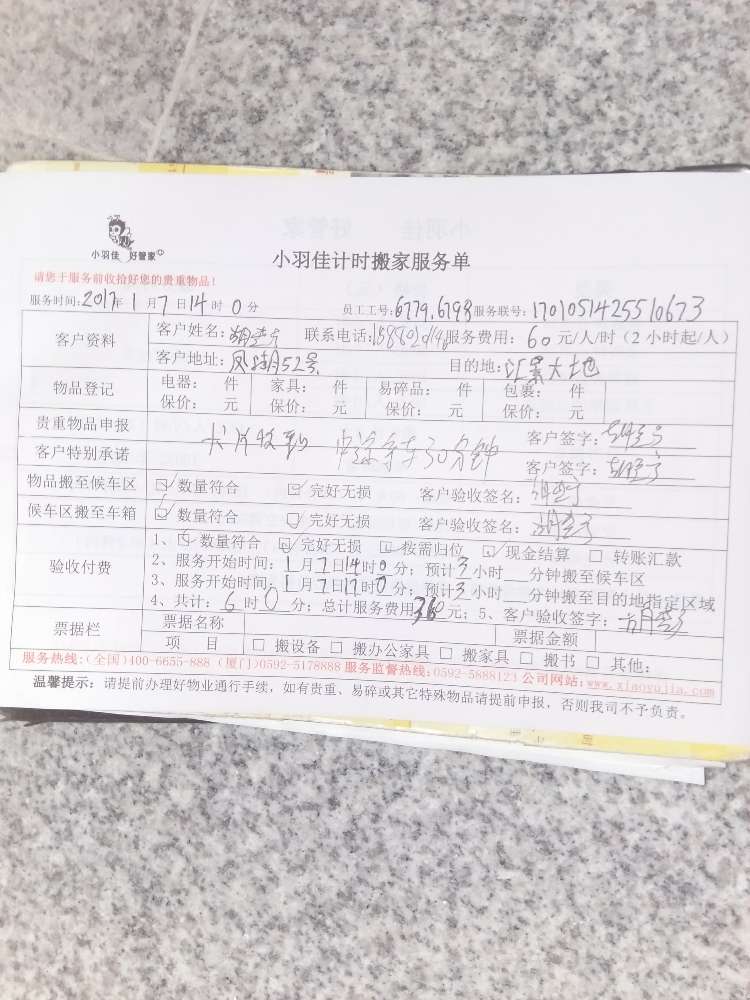 小羽佳 好管家
小羽佳计时搬家服务单
请您于服务前收拾好您的贵重物品!
服务时间:2017年1月7日14时0分 员工工号:6779.6793 服务联号:1701051425510673
客户资料 客户姓名: 联系电话: 服务费用:60元/人/时(2小时起/人)
客户地址:凤胡52号 目的地:汇景大地
物品登记 电器: 件 家具: 件 易碎品: 件 包裹: 件
保价: 元 保价: 元 保价: 元 保价: 元
贵重物品申报 客户签字:
客户特别承诺 中途等车30分钟 客户签字:
物品搬至候车区 ☑数量符合 ☑完好无损 客户验收签名:
候车区搬至车箱 ☑数量符合 ☑完好无损 客户验收签名:
验收付费 1、☑数量符合 ☑完好无损 ☑按需归位 ☑现金结算 □转账汇款
2、服务开始时间:1月7日14时0分;预计3小时 分钟搬至候车区
3、服务开始时间:1月7日17时0分;预计3小时 分钟搬至目的地指定区域
4、共计:6时0分;总计服务费用360元;5、客户验收签字:
票据栏 票据名称 票据金额
项 目 □搬设备 □搬办公家具 □搬家具 □搬书 □其他:
服务热线:(全国)400-6655-888 (厦门)0592-5178888 服务监督热线:0592-5888123 公司网站:www.xiaoyujia.com
温馨提示:请提前办理好物业通行手续,如有贵重、易碎或其它特殊物品请提前申报,否则我司不予负责。